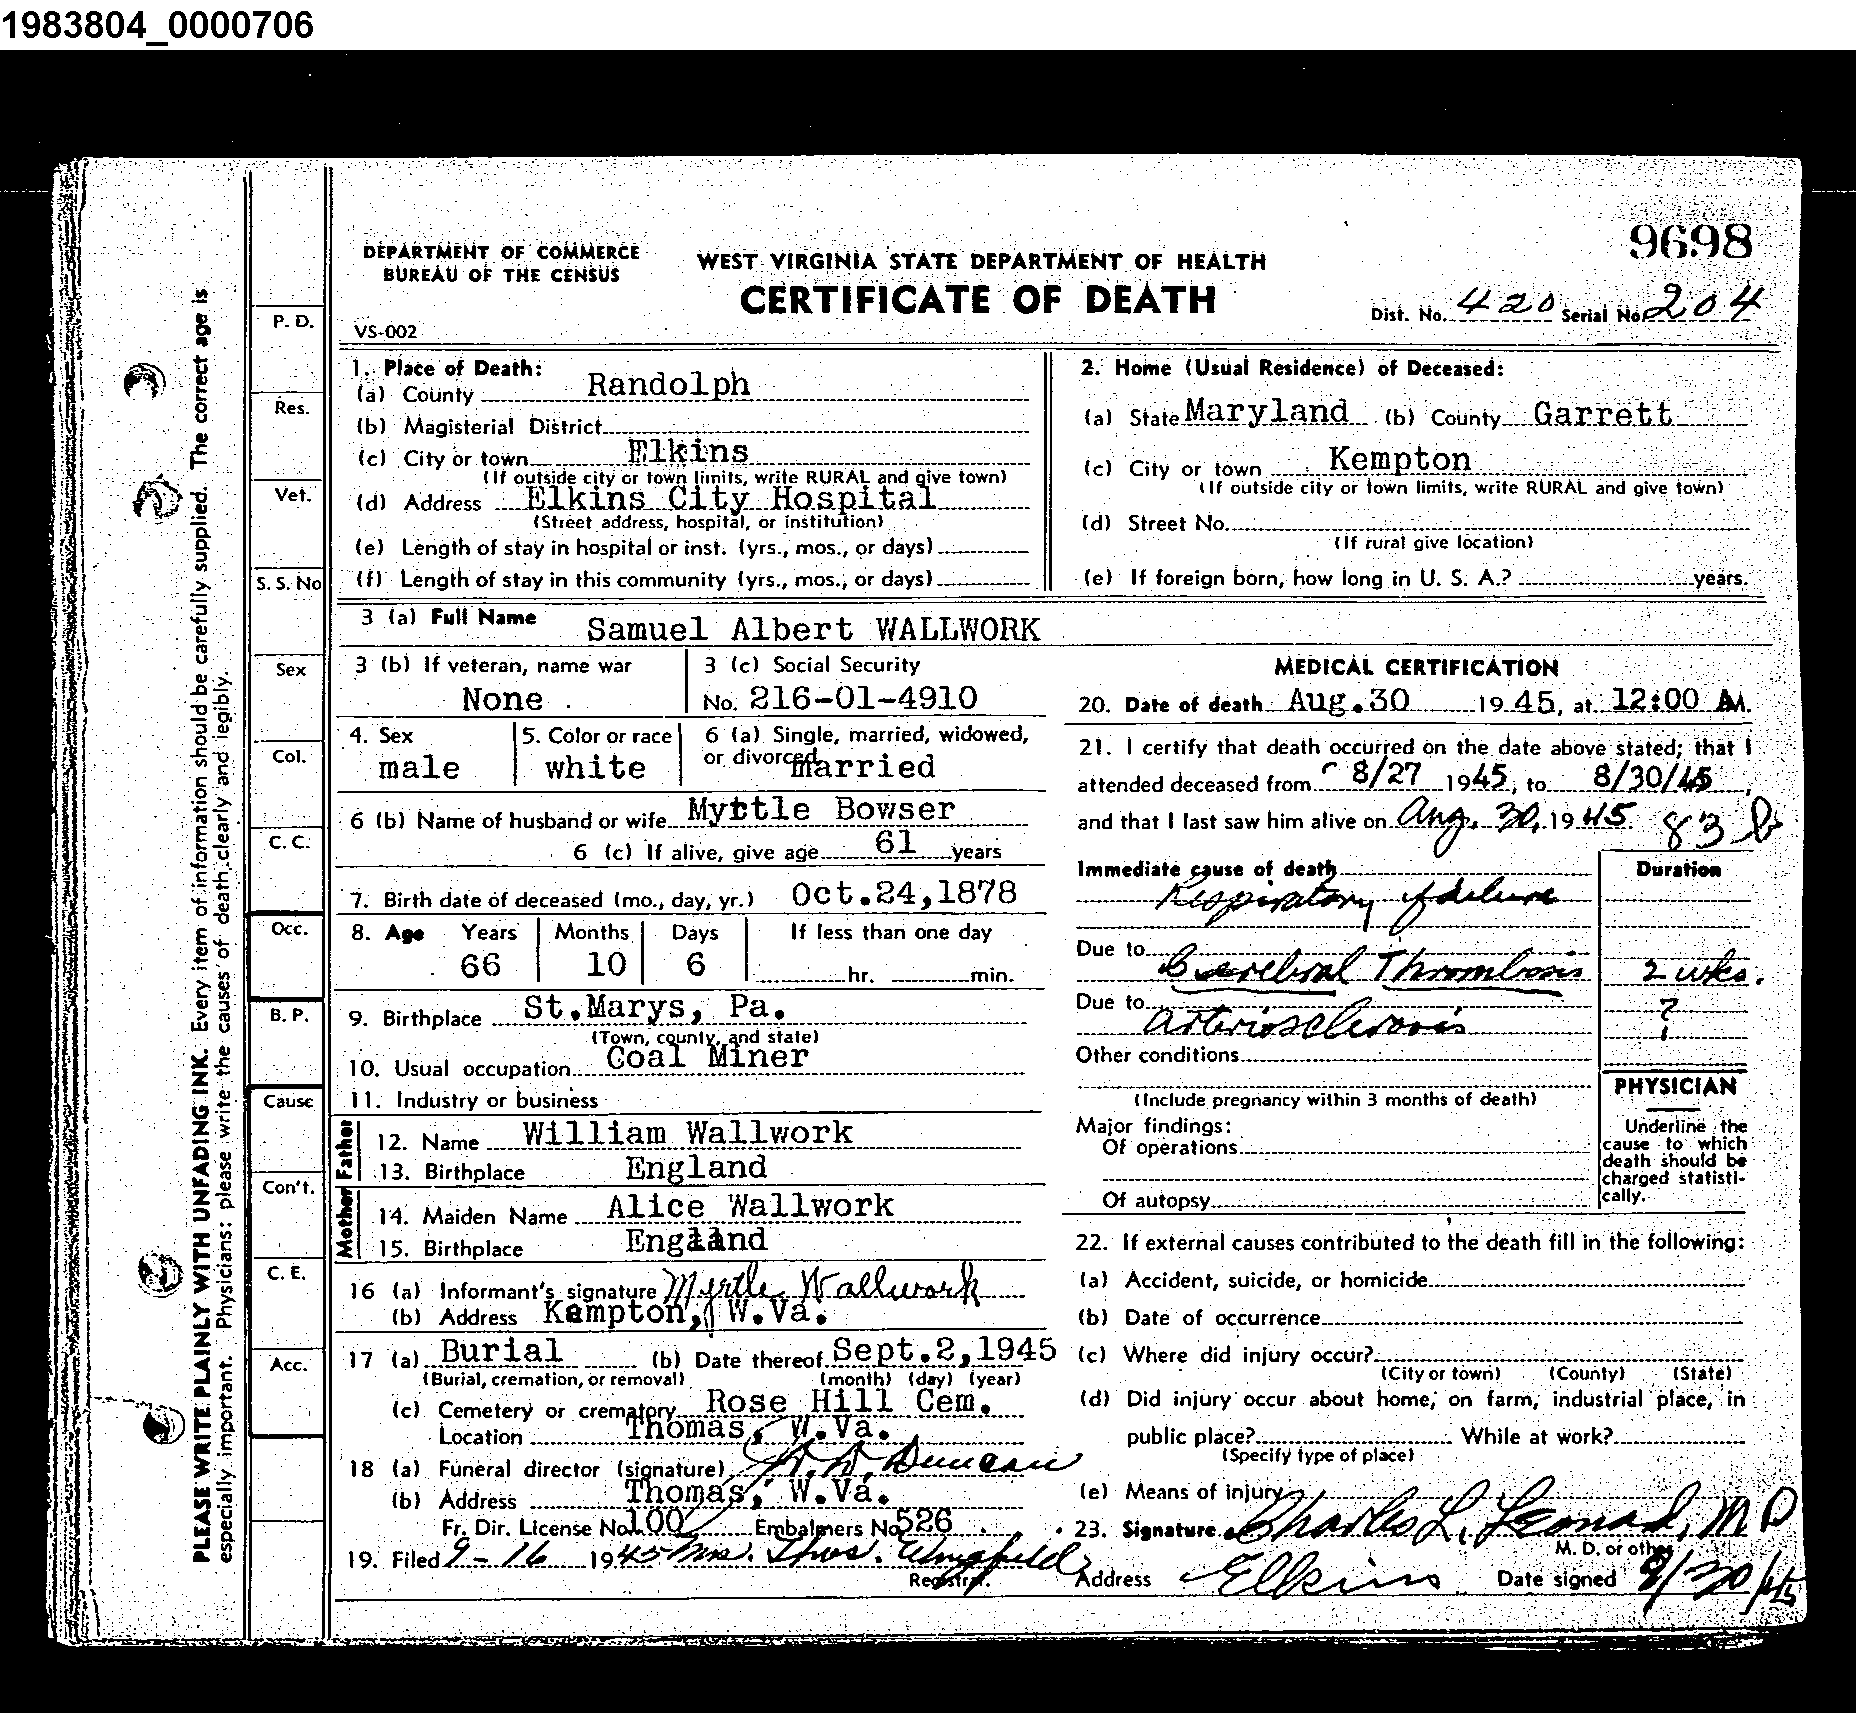 1983804_0000706
PLEASE WRITE PLAINLY WITH UNFADING INK. Every item of information should be carefully supplied. The correct age is
especially important. Physicians: please write the causes of death clearly and legibly.
P. D.
Res.
Vet.
S. S. No
Sex
Col.
C. C.
Occ.
B. P.
Cause
Con't.
C. E.
Acc.
DEPARTMENT OF COMMERCE
BUREAU OF THE CENSUS
VS-002
WEST VIRGINIA STATE DEPARTMENT OF HEALTH
CERTIFICATE OF DEATH
9698
Dist. No. 420 Serial No. 204
1. Place of Death:
(a) County Randolph
(b) Magisterial District
(c) City or town Elkins
(If outside city or town limits, write RURAL and give town)
(d) Address Elkins City Hospital
(Street address, hospital, or institution)
(e) Length of stay in hospital or inst. (yrs., mos., or days)
(f) Length of stay in this community (yrs., mos., or days)
2. Home (Usual Residence) of Deceased:
(a) State Maryland (b) County Garrett
(c) City or town Kempton
(If outside city or town limits, write RURAL and give town)
(d) Street No.
(If rural give location)
(e) If foreign born, how long in U. S. A.? years.
3 (a) Full Name Samuel Albert WALLWORK
3 (b) If veteran, name war None
3 (c) Social Security No. 216-01-4910
4. Sex male
5. Color or race white
6 (a) Single, married, widowed, or divorced married
6 (b) Name of husband or wife Myrtle Bowser
6 (c) If alive, give age 61 years
7. Birth date of deceased (mo., day, yr.) Oct.24,1878
8. Age Years Months Days If less than one day
66 10 6 hr. min.
9. Birthplace St.Marys, Pa.
(Town, county, and state)
10. Usual occupation Coal Miner
11. Industry or business
Father
12. Name William Wallwork
13. Birthplace England
Mother
14. Maiden Name Alice Wallwork
15. Birthplace England
16 (a) Informant's signature Myrtle Wallwork
(b) Address Kempton, W.Va.
17 (a) Burial (b) Date thereof Sept.2,1945
(Burial, cremation, or removal) (month) (day) (year)
(c) Cemetery or crematory Rose Hill Cem.
Location Thomas, W.Va.
18 (a) Funeral director (signature) Duncan
(b) Address Thomas, W.Va.
Fr. Dir. License No. 100 Embalmers No. 526
19. Filed 9-16 1945 Mrs. Thos. Wingfield
Registrar.
MEDICAL CERTIFICATION
20. Date of death Aug.30 1945, at 12:00 AM.
21. I certify that death occurred on the date above stated; that I
attended deceased from 8/27 1945, to 8/30/45,
and that I last saw him alive on Aug. 30, 1945. 83 b
Immediate cause of death Duration
Respiratory failure
Due to Cerebral Thrombosis 2 wks.
Due to Arteriosclerosis ?
Other conditions
(Include pregnancy within 3 months of death)
Major findings:
Of operations
Of autopsy
PHYSICIAN
Underline the
cause to which
death should be
charged statisti-
cally.
22. If external causes contributed to the death fill in the following:
(a) Accident, suicide, or homicide
(b) Date of occurrence
(c) Where did injury occur?
(City or town) (County) (State)
(d) Did injury occur about home, on farm, industrial place, in
public place? While at work?
(Specify type of place)
(e) Means of injury
23. Signature Charles L. Leonard, M D
M. D. or other
Address Elkins Date signed 8/30/45